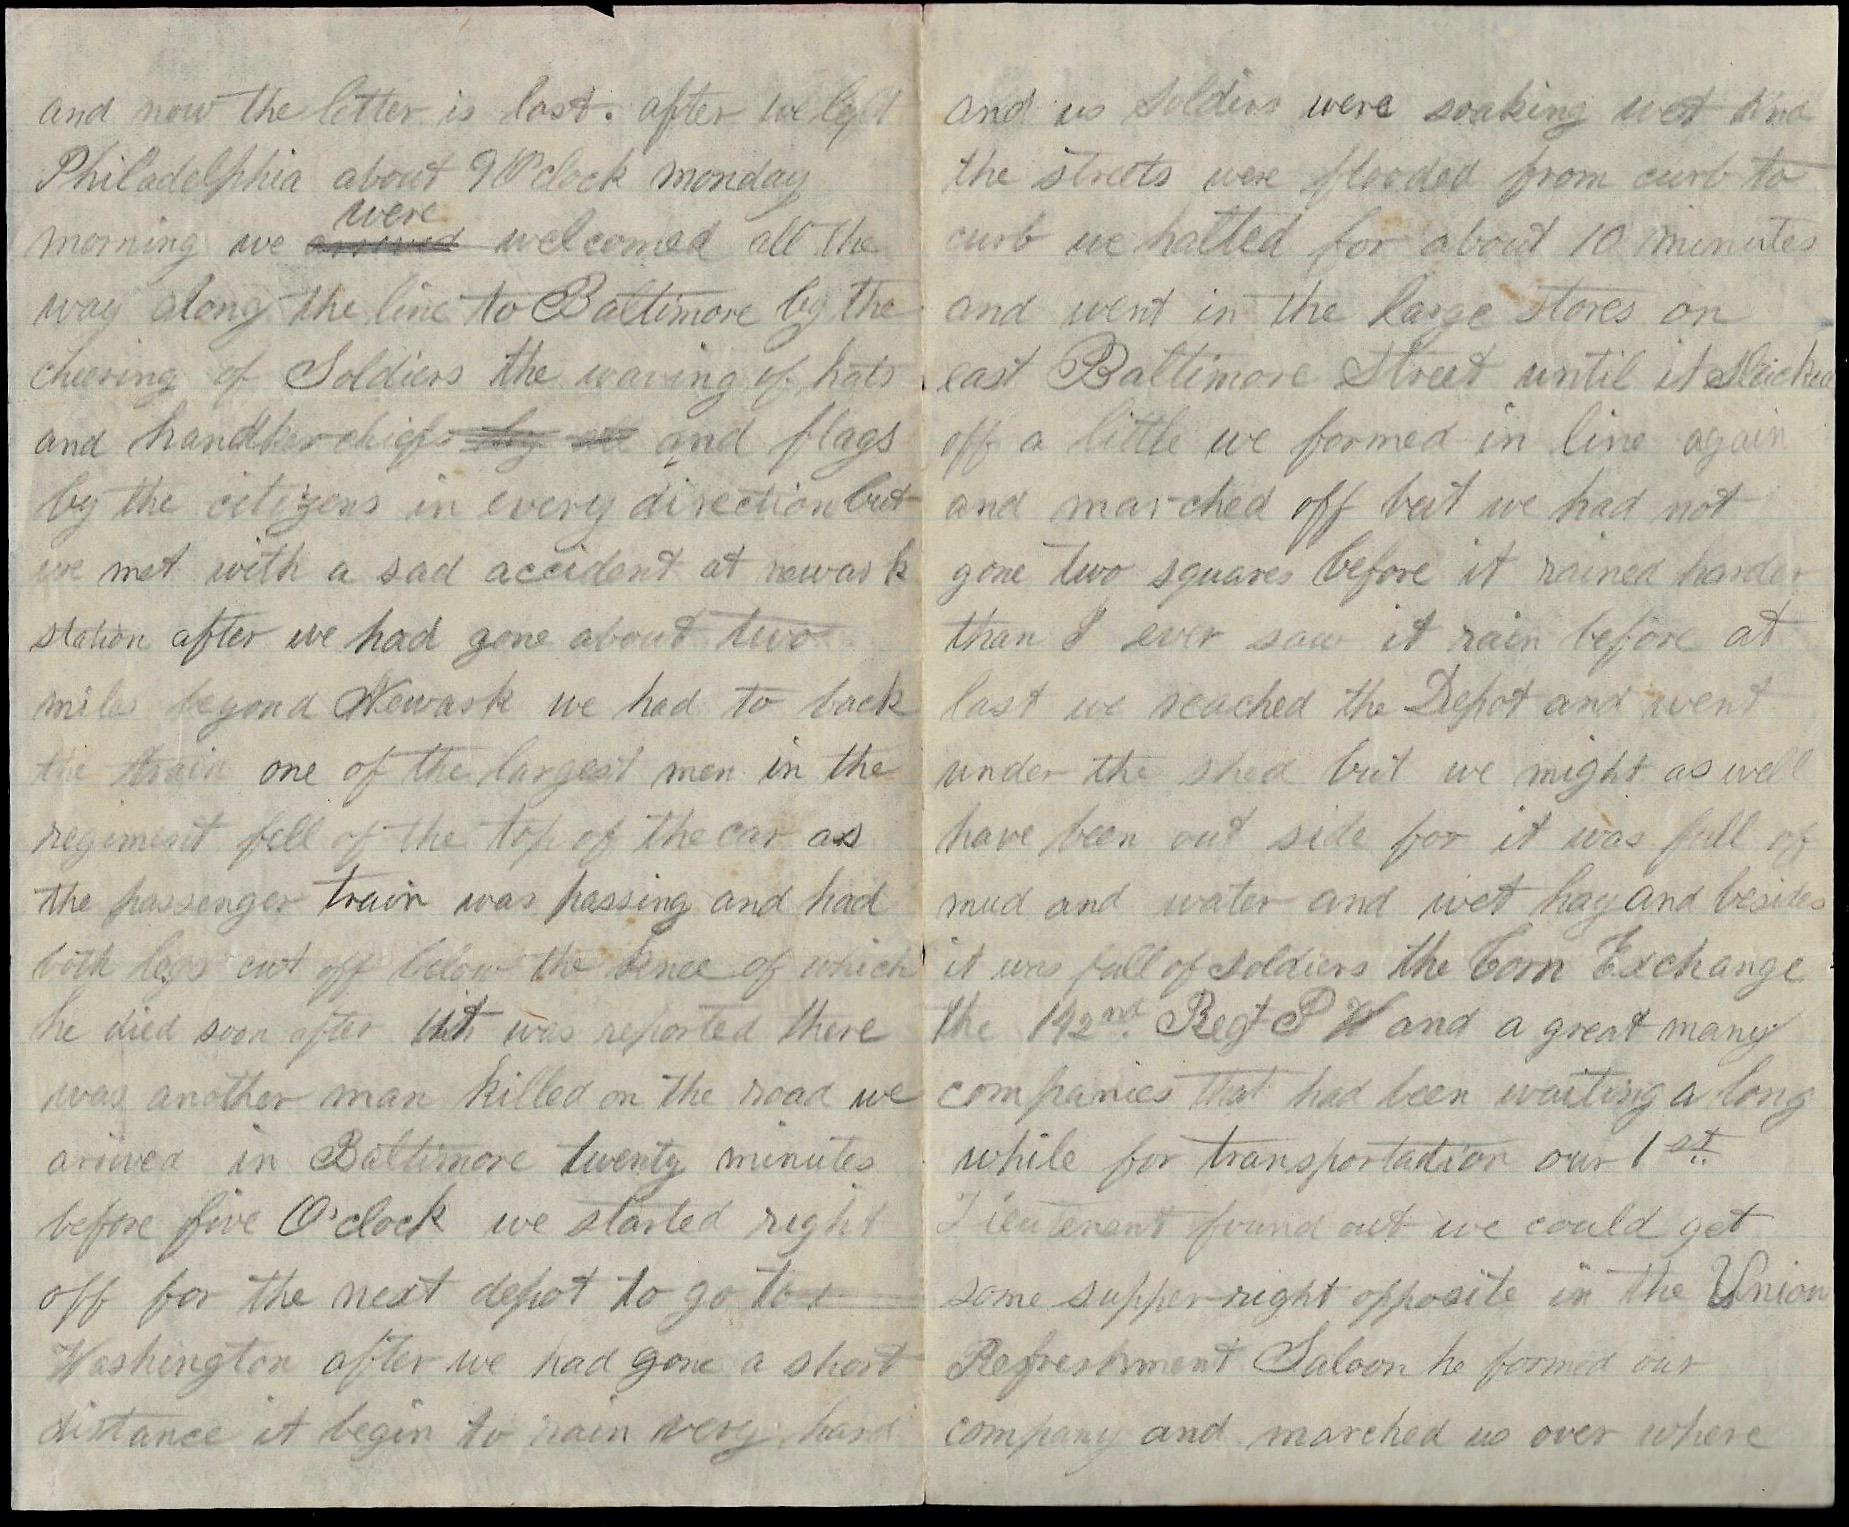 and now the letter is lost. after we left
Philadelphia about 9 O'clock monday
were
morning we arrived welcomed all the
way along the line to Baltimore by the
cheering of Soldiers the waving of hats
and handkerchiefs by all and flags
by the citizens in every direction but
we met with a sad accident at newark
station after we had gone about two
miles beyond Newark we had to back
the train one of the largest men in the
regiment fell of the top of the car as
the passenger train was passing and had
both legs cut off below the knee of which
he died soon after it was reported there
was another man killed on the road we
arived in Baltimore twenty minutes
before five O'clock we started right
off for the next depot to go to
Washington after we had gone a short
distance it begin to rain very hard
and us Soldiers were soaking wet and
the streets were flooded from curb to
curb we halted for about 10 minutes
and went in the large stores on
east Baltimore Street until it Slacked
off a little we formed in line again
and marched off but we had not
gone two squares before it rained harder
than I ever saw it rain before at
last we reached the Depot and went
under the shed but we might as well
have been out side for it was full of
mud and water and wet hay and besides
it was full of soldiers the Corn Exchange
the 142nd. Regt P and a great many
companies that had been waiting a long
while for transportation our 1st
Lieutenant found out we could get
some supper right opposite in the Union
Refreshment Saloon he formed our
company and marched us over where